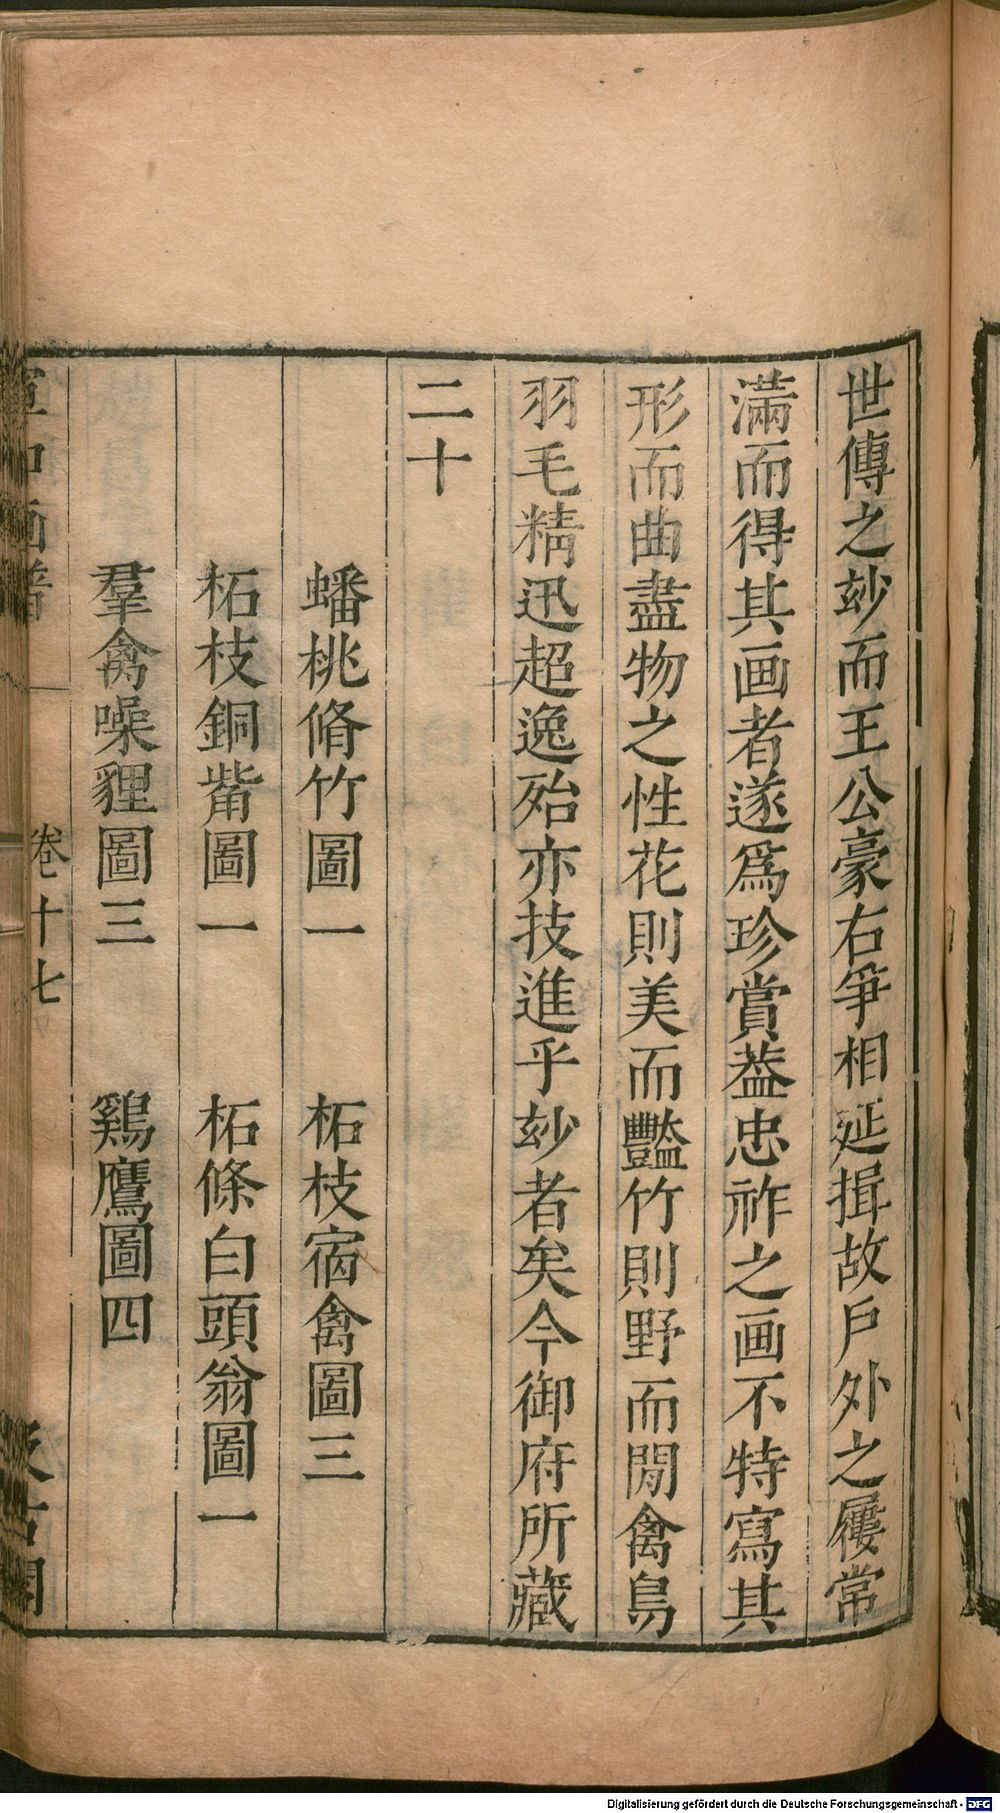 世傳之玅而王公豪右爭相延揖故戶外之屨常
滿而得其画者遂爲珍賞葢忠祚之画不特寫其
形而曲盡物之性花則美而豔竹則野而閒禽鳥
羽毛精迅超逸殆亦技進乎玅者矣今御府所藏
二十
蟠桃脩竹圖一 柘枝宿禽圖三
柘枝銅觜圖一 柘條白頭翁圖一
羣禽噪貍圖三 鷄鷹圖四
宣和画譜 卷十七 汲古閣
Digitalisierung gefördert durch die Deutsche Forschungsgemeinschaft - DFG